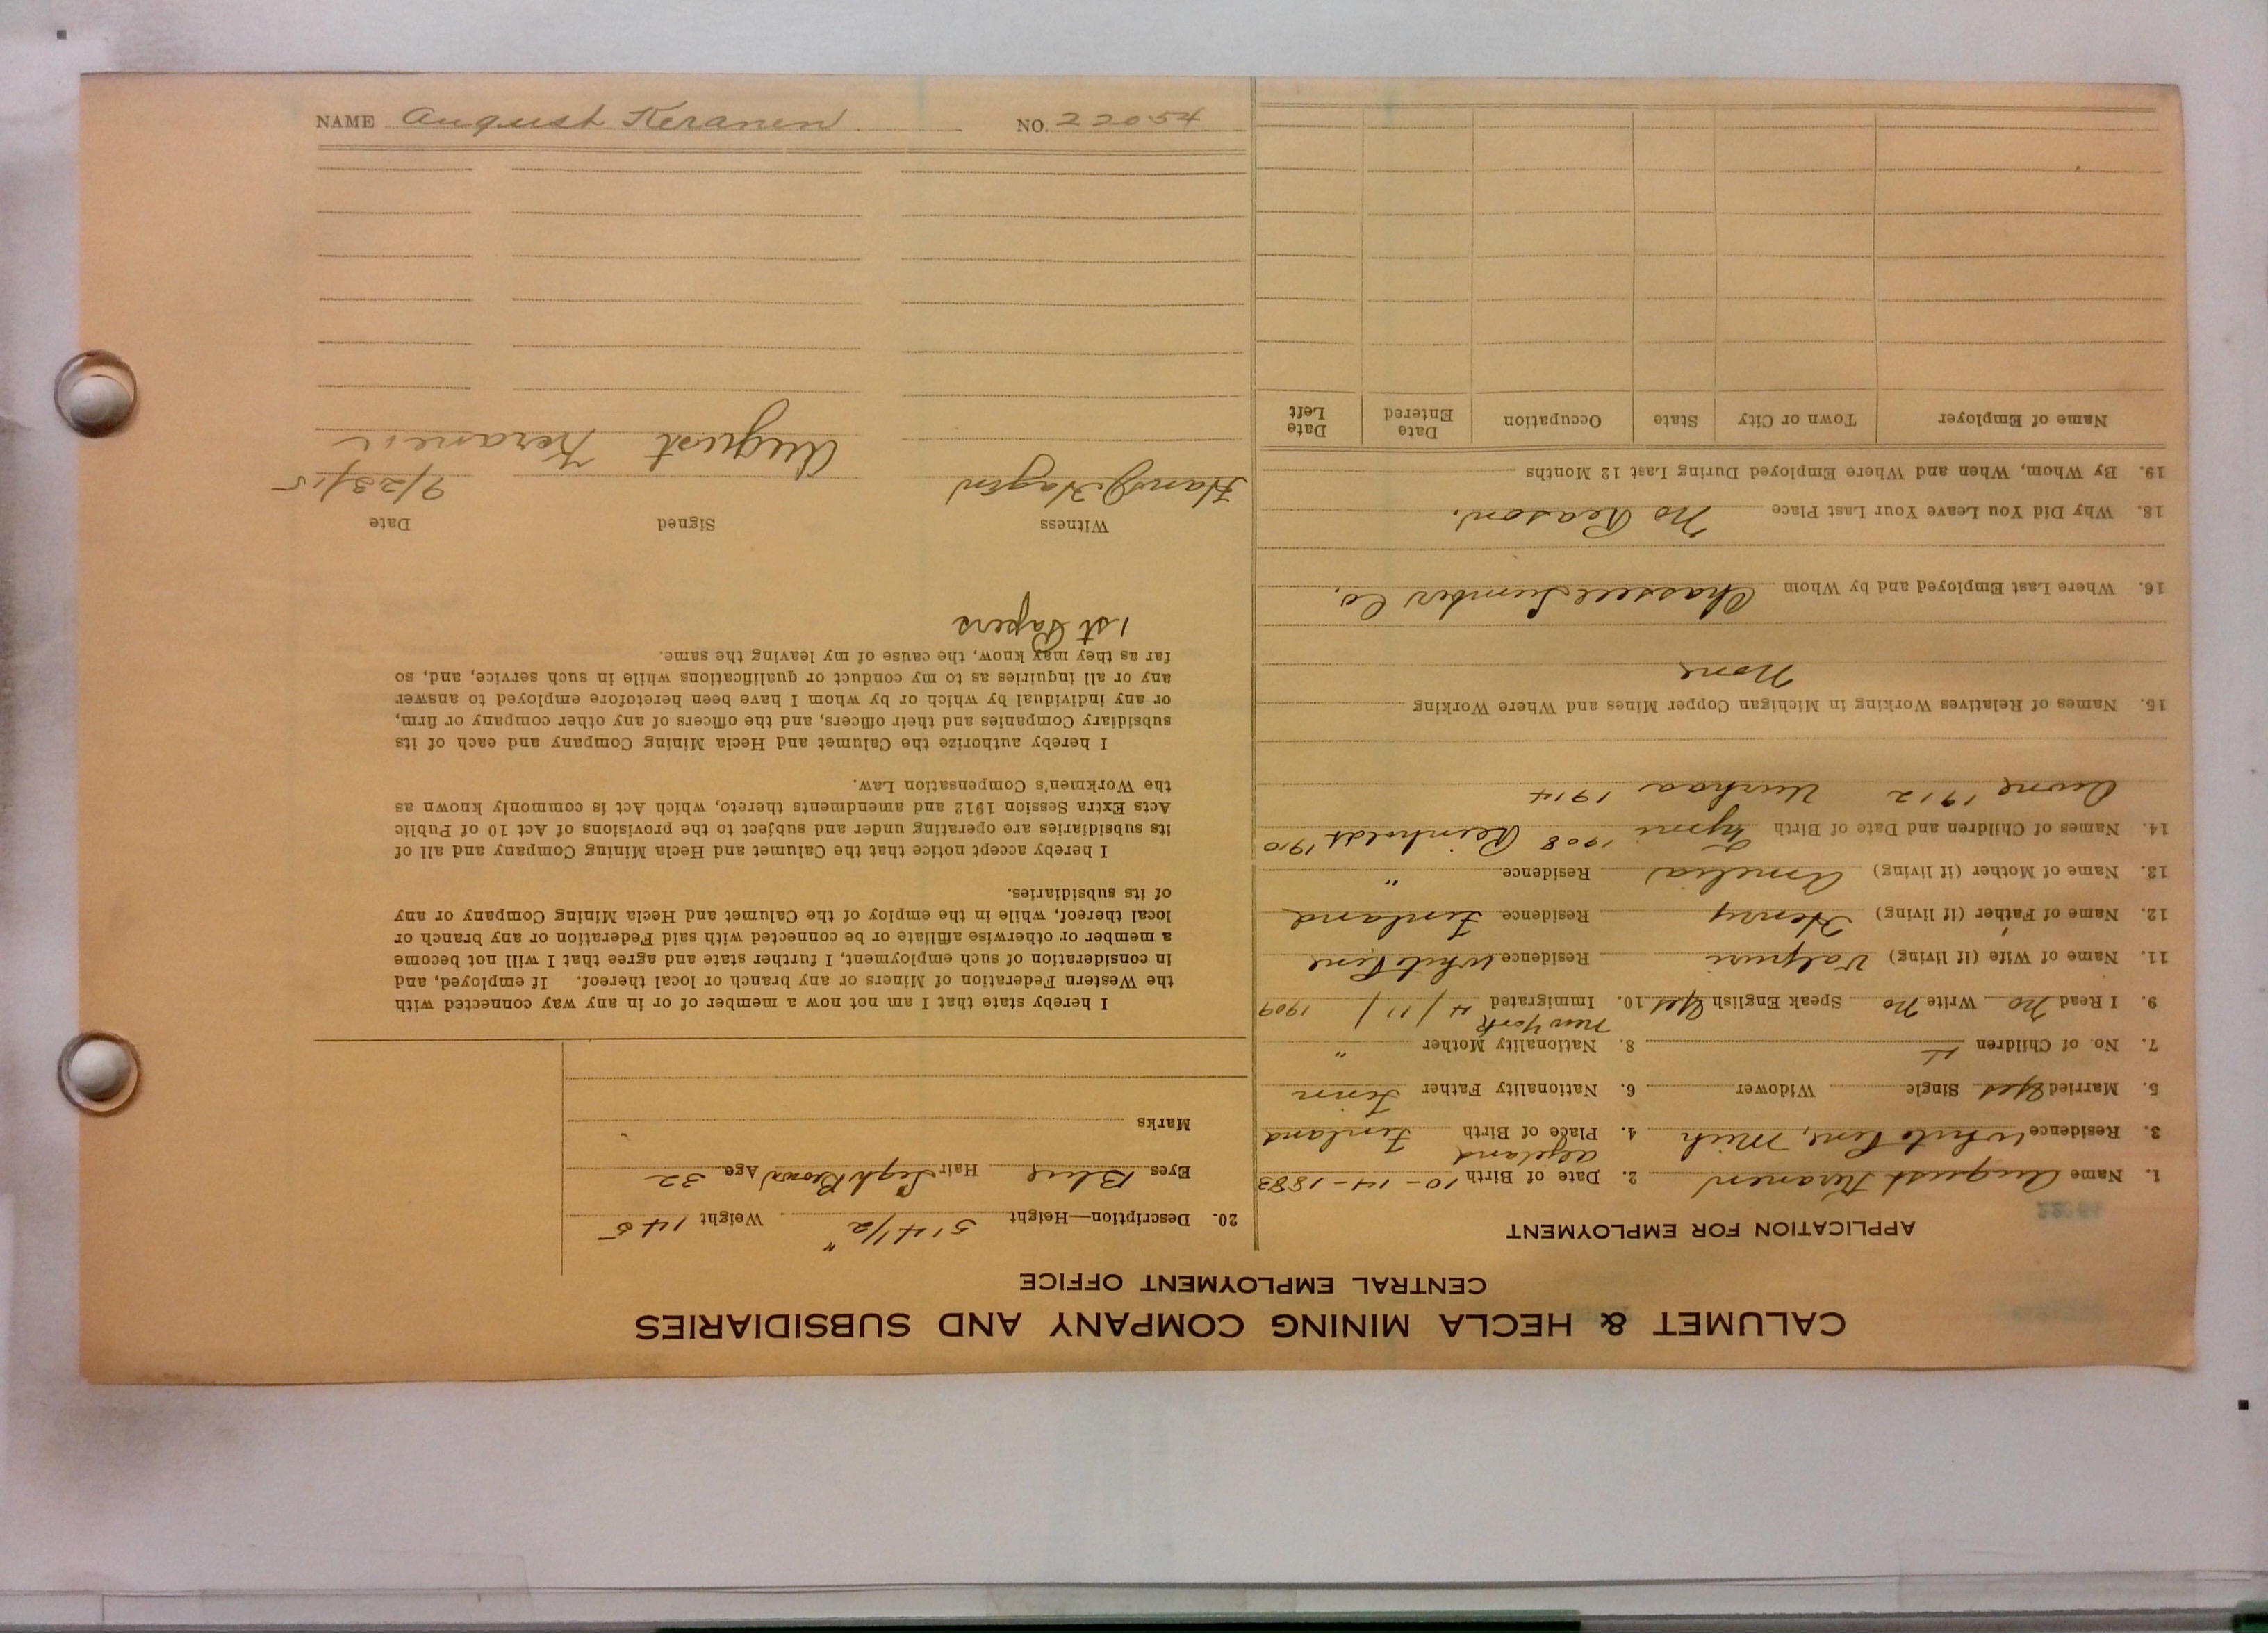 CALUMET & HECLA MINING COMPANY AND SUBSIDIARIES
CENTRAL EMPLOYMENT OFFICE
APPLICATION FOR EMPLOYMENT
1. Name August Keranen 2. Date of Birth 10-14-1883
3. Residence White Pine, Mich 4. Place of Birth Finland
5. Married Yes Single Widower 6. Nationality Father Finn
7. No. of Children 4 8. Nationality Mother "
New York
9. I Read No Write No Speak English Yes 10. Immigrated 4/11/1909
11. Name of Wife (if living) Valpuri Residence White Pine
12. Name of Father (if living) Henry Residence Finland
13. Name of Mother (if living) Amelia Residence "
14. Names of Children and Date of Birth 1908 Reinholdt 1910
1912 1914
15. Names of Relatives Working in Michigan Copper Mines and Where Working
None
16. Where Last Employed and by Whom Chassell Lumber Co.
18. Why Did You Leave Your Last Place No Reason.
19. By Whom, When and Where Employed During Last 12 Months
Name of Employer Town or City State Occupation Date Entered Date Left
20. Description—Height 5'4 1/2" Weight 145
Eyes Blue Hair Brown Age 32
Marks
I hereby state that I am not now a member of or in any way connected with
the Western Federation of Miners or any branch or local thereof. If employed, and
in consideration of such employment, I further state and agree that I will not become
a member or otherwise affiliate or be connected with said Federation or any branch or
local thereof, while in the employ of the Calumet and Hecla Mining Company or any
of its subsidiaries.
I hereby accept notice that the Calumet and Hecla Mining Company and all of
its subsidiaries are operating under and subject to the provisions of Act 10 of Public
Acts Extra Session 1912 and amendments thereto, which Act is commonly known as
the Workmen's Compensation Law.
I hereby authorize the Calumet and Hecla Mining Company and each of its
subsidiary Companies and their officers, and the officers of any other company or firm,
or any individual by which or by whom I have been heretofore employed to answer
any or all inquiries as to my conduct or qualifications while in such service, and, so
far as they may know, the cause of my leaving the same.
1st Papers
Witness Signed Date
9/23/15
August Keranen
NAME August Keranen NO. 22054